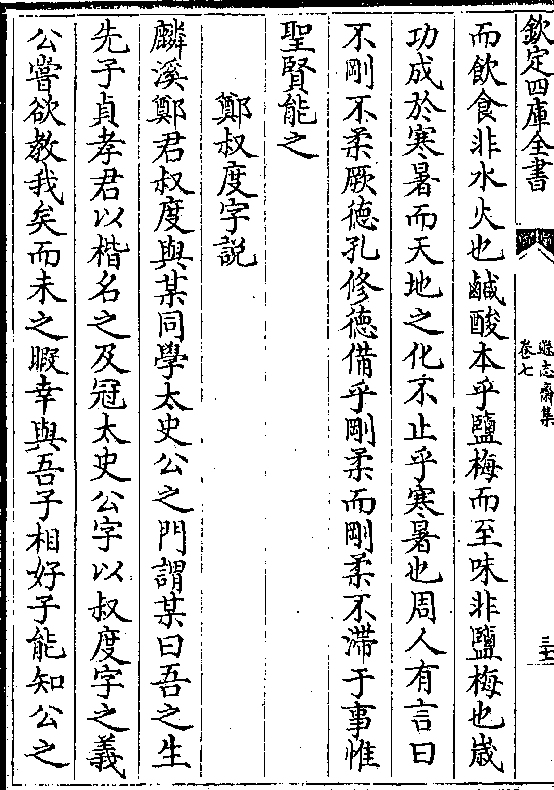 欽定四庫全書
遜志齋集
卷七
三十二
而飲食非水火也鹹酸本乎鹽梅而至味非鹽梅也歲
功成於寒暑而天地之化不止乎寒暑也周人有言曰
不剛不柔厥徳孔修徳備乎剛柔而剛柔不滯于事惟
聖賢能之
鄭叔度字説
麟溪鄭君叔度與某同學太史公之門謂某曰吾之生
先子貞孝君以楷名之及冠太史公字以叔度字之義
公嘗欲教我矣而未之暇幸與吾子相好子能知公之